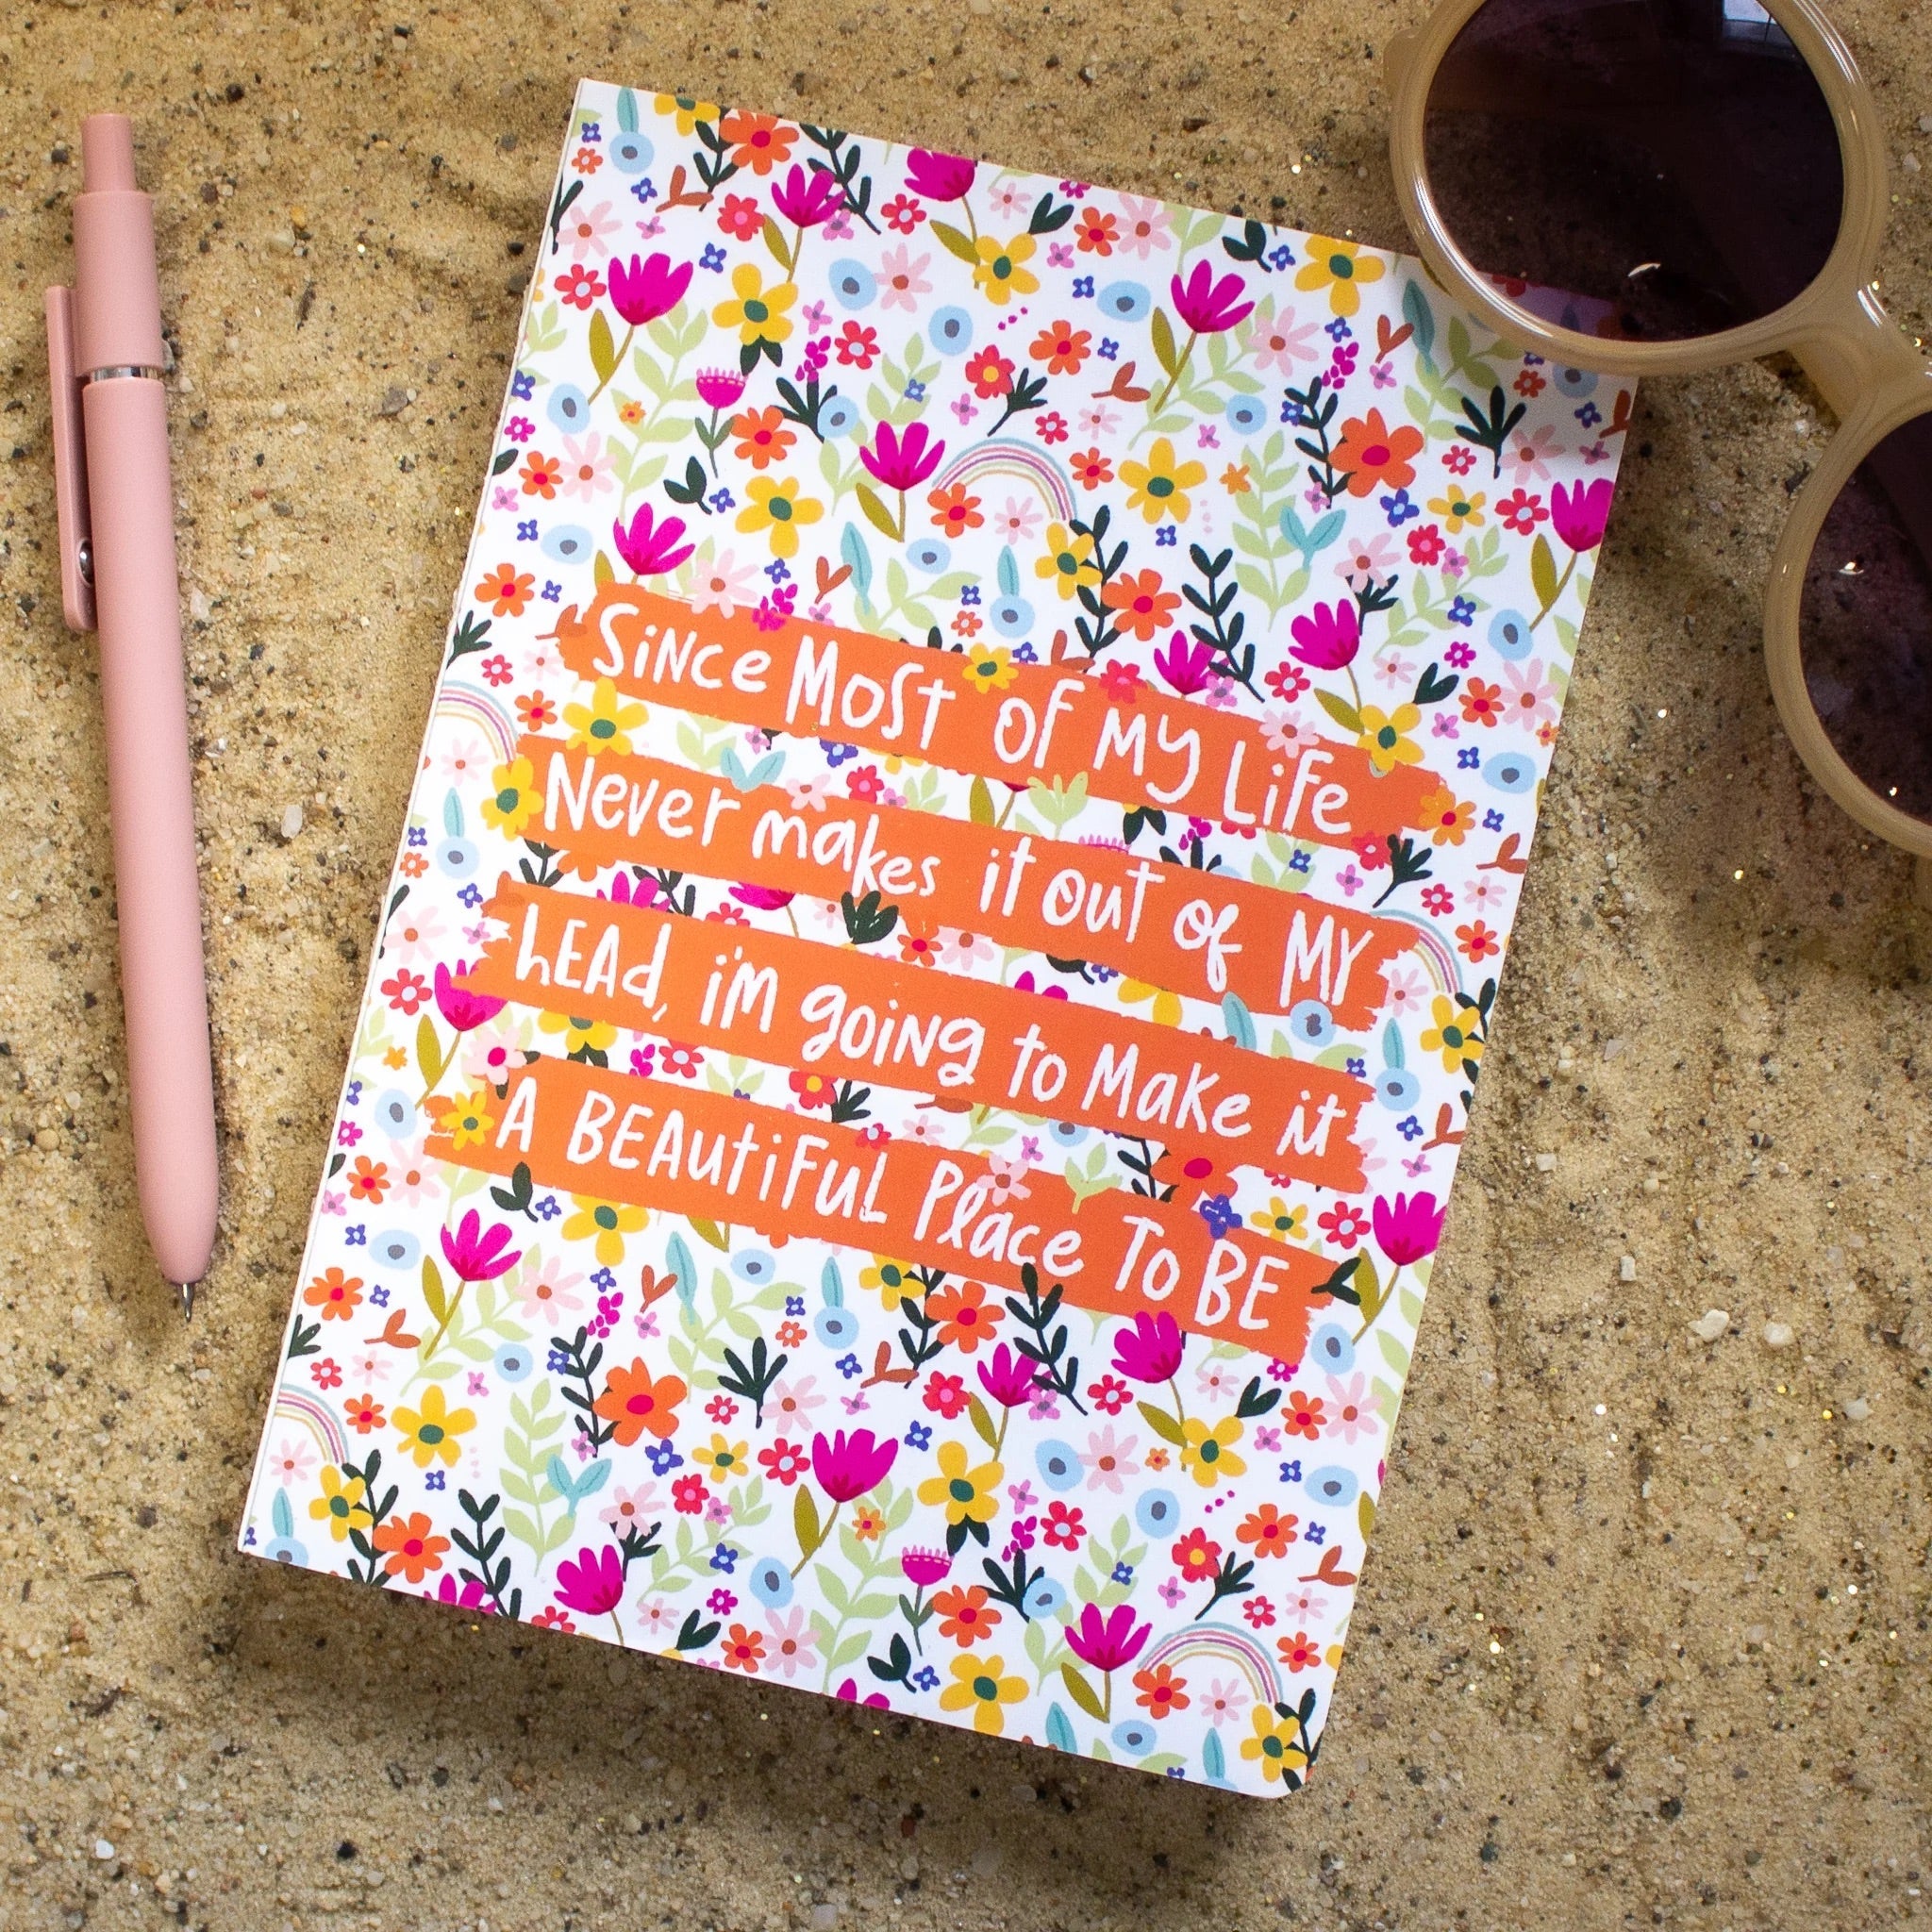 SiNCe MOST OF MY LiFe
Never makes it out of MY
hEAd, i'm going to Make it
A BEAutiFuL Place To BE